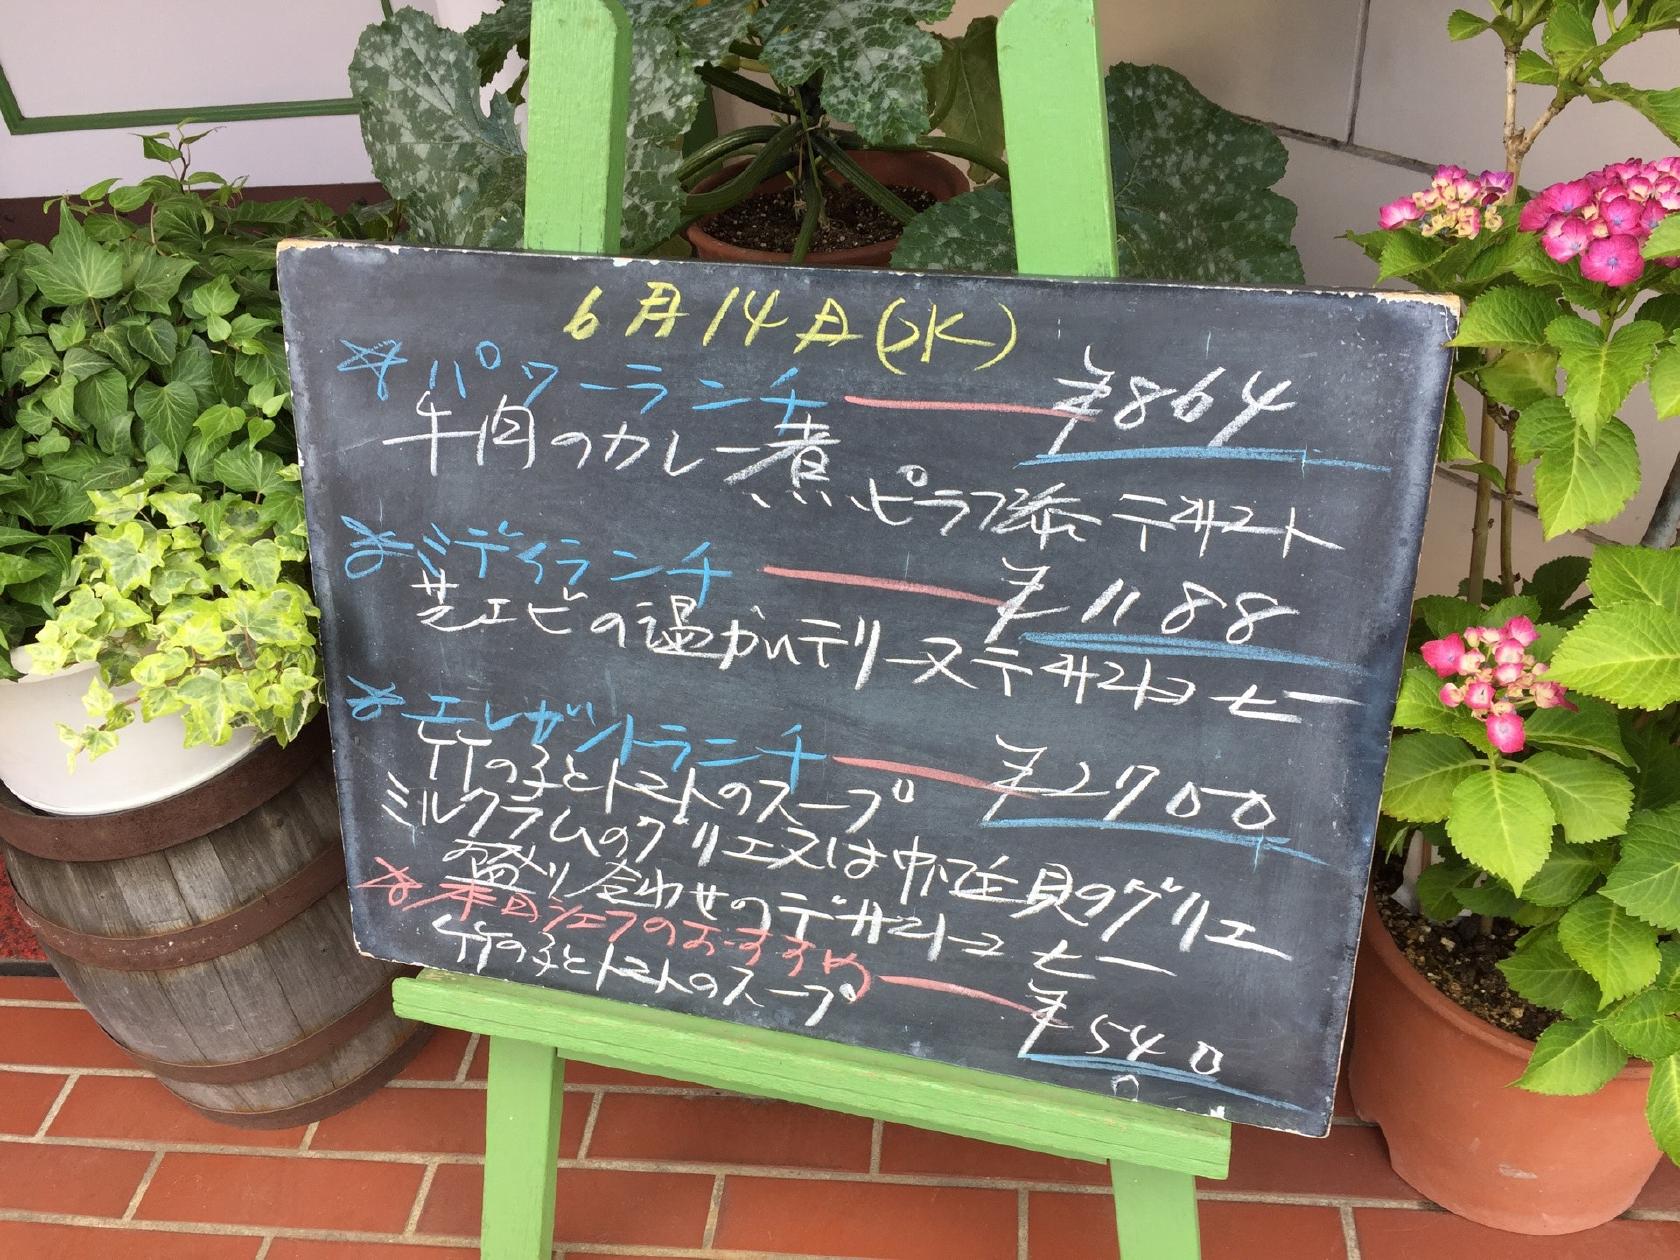 6月14日(水)
☆パワーランチ ¥864
牛肉のカレー煮、ピラフ添 デザート
☆ミディランチ ¥1188
芝エビの温かいテリーヌ デザートコーヒー
☆エレガントランチ ¥2700
竹の子とトマトのスープ
ミルクラムのグリエ又は帆立貝のグリエ
盛り合わせのデザートコーヒー
☆本日シェフのおすすめ
竹の子とトマトのスープ ¥540